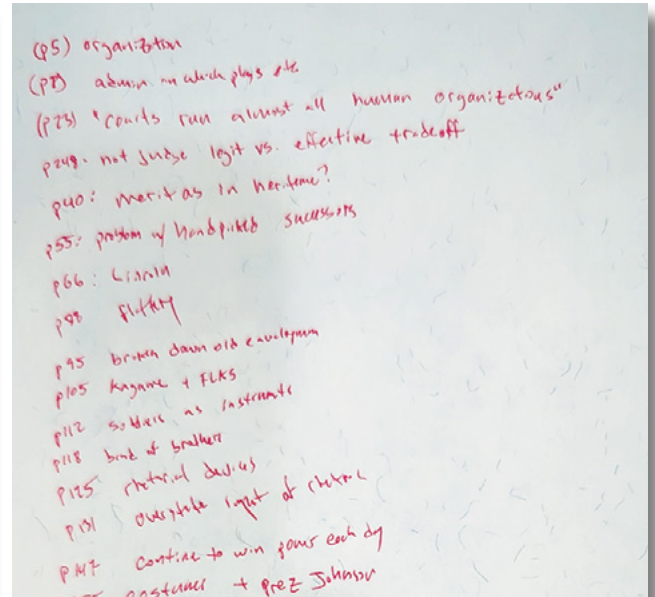 (p5) organization
(p8) admin in which plays etc
(p23) "courts run almost all human organizations"
p249. not judge legit vs. effective tradeoff
p40: merit as in
p55: problem w/ handpicked successors
p66: Lincoln
p88 flattery
p95 broken down old
p105 Kagame + FLKS
p112 soldiers as instruments
p118 band of brothers
p125 rhetorical devices
p131 overstate impact of rhetoric
p147 contine to win power each day
+ prez Johnson